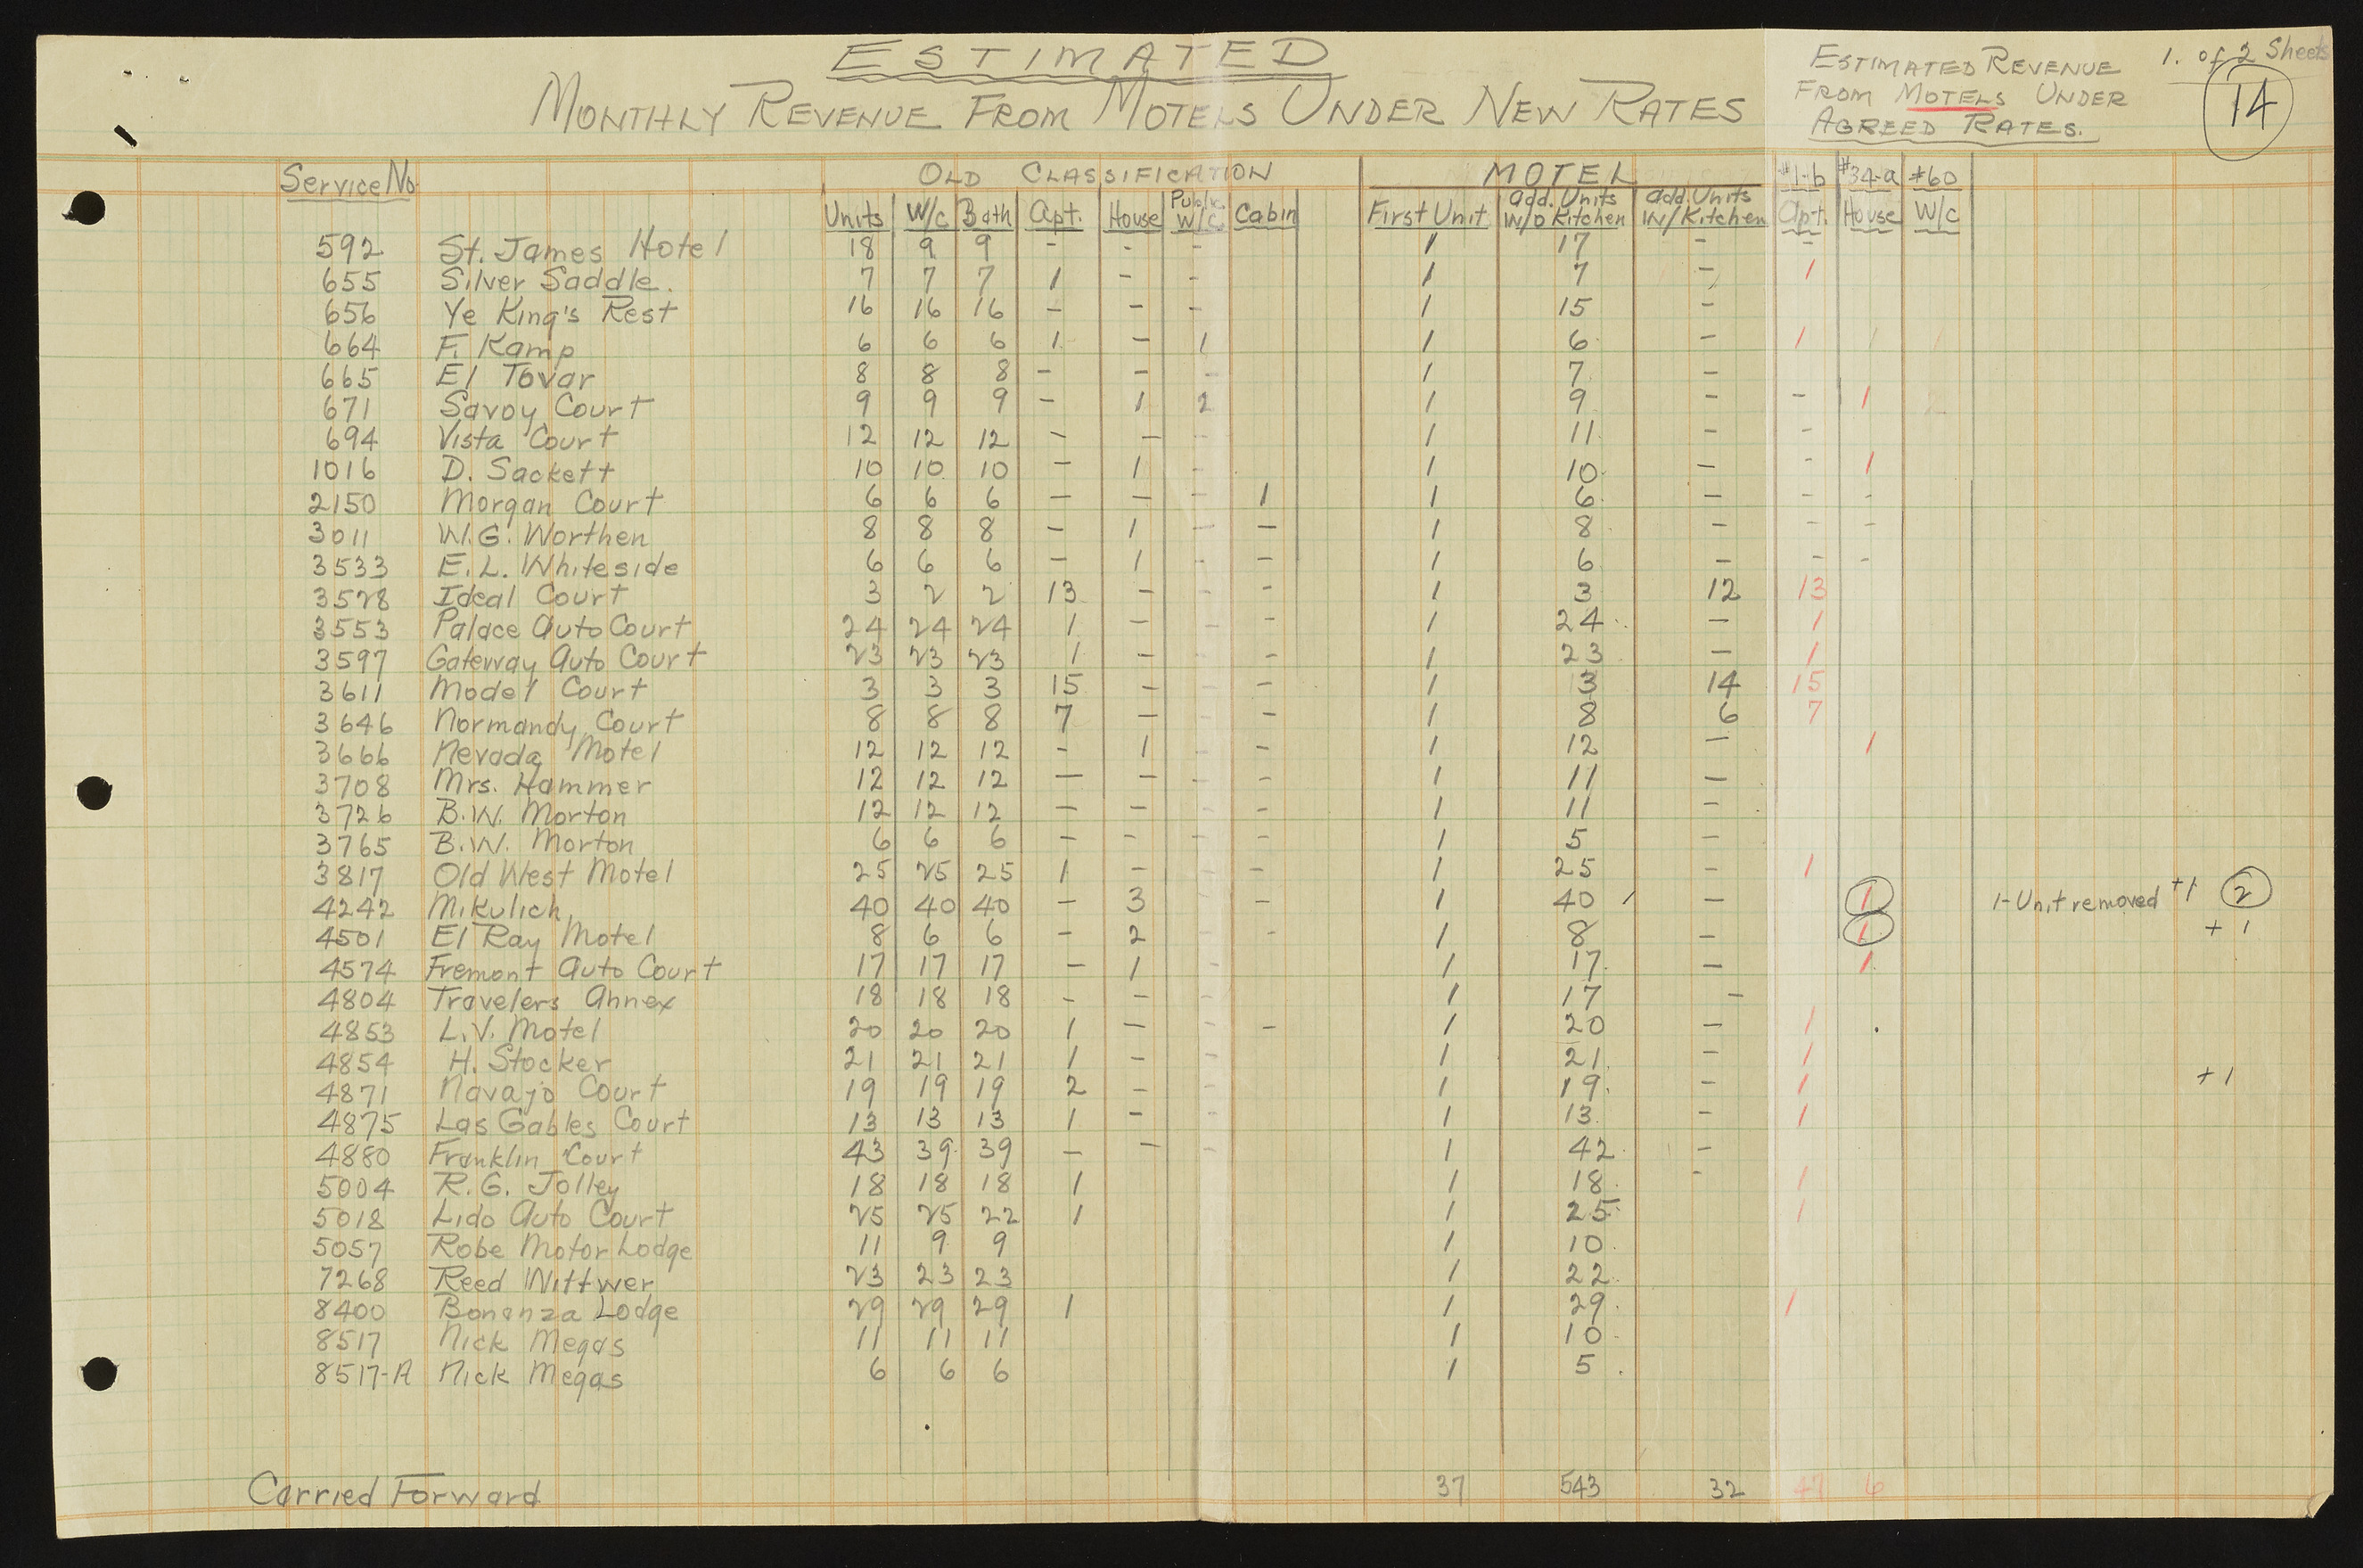 ESTIMATED
MONTHLY REVENUE FROM MOTELS UNDER NEW RATES
ESTIMATED REVENUE
FROM MOTELS UNDER
AGREED RATES.
1. of 2 Sheets
14
Service No. OLD CLASSIFICATION MOTEL #1-b #34-a #60
Units W/c Bath Apt. House Public W/c Cabin First Unit Add. Units W/O Kitchen Add. Units W/Kitchen Apt. House W/c
592 St. James Hotel 18 9 9 - - - 1 17 - -
655 Silver Saddle. 7 7 7 1 - - 1 7 - 1
656 Ye King's Rest 16 16 16 - - - 1 15 -
664 F. Kamp 6 6 6 1 - 1 1 6 - 1 1 1
665 El Tovar 8 8 8 - - - 1 7 -
671 Savoy Court 9 9 9 - 1 2 1 9 - - 1 2
694 Vista Court 12 12 12 - - - 1 11 - -
1016 D. Sackett 10 10 10 - 1 - 1 10 - - 1
2150 Morgan Court 6 6 6 - - - 1 1 6 - - -
3011 W.G. Worthen 8 8 8 - 1 - - 1 8 - - -
3533 E.L. Whiteside 6 6 6 - 1 - - 1 6 - - -
3528 Ideal Court 3 2 2 13 - - - 1 3 12 13
3553 Palace Auto Court 24 24 24 1 - - - 1 24 - 1
3597 Gateway Auto Court 23 23 23 1 - - - 1 23 - 1
3611 Model Court 3 3 3 15 - - - 1 3 14 15
3646 Normandy Court 8 8 8 7 - - - 1 8 6 7
3666 Nevada Motel 12 12 12 - 1 - - 1 12 - 1
3708 Mrs. Hammer 12 12 12 - - - - 1 11 -
3726 B.W. Morton 12 12 12 - - - - 1 11 -
3765 B.W. Morton 6 6 6 - - - - 1 5 -
3817 Old West Motel 25 25 25 1 - - - 1 25 - 1
4242 Mikulich 40 40 40 - 3 - - 1 40 - 1 1-Unit removed +1 2
4501 El Ray Motel 8 6 6 - 2 - - 1 8 - 1 +1
4574 Fremont Auto Court 17 17 17 - 1 - 1 17 - 1
4804 Travelers Annex 18 18 18 - - - 1 17 -
4853 L.V. Motel 20 20 20 1 - - - 1 20 - 1
4854 H. Stocker 21 21 21 1 - - 1 21 - 1
4871 Navajo Court 19 19 19 2 - - 1 19 - 1 +1
4875 Las Gables Court 13 13 13 1 - - 1 13 - 1
4880 Franklin Court 43 39 39 - - - 1 42 -
5004 R.G. Jolley 18 18 18 1 1 18 - 1
5018 Lido Auto Court 25 25 22 1 1 25 1
5057 Robe Motor Lodge 11 9 9 1 10
7268 Reed Wittwer 23 23 23 1 22
8400 Bonanza Lodge 29 29 29 1 1 29 1
8517 Nick Megas 11 11 11 1 10
8517-A Nick Megas 6 6 6 1 5
Carried Forward 37 543 32 47 6